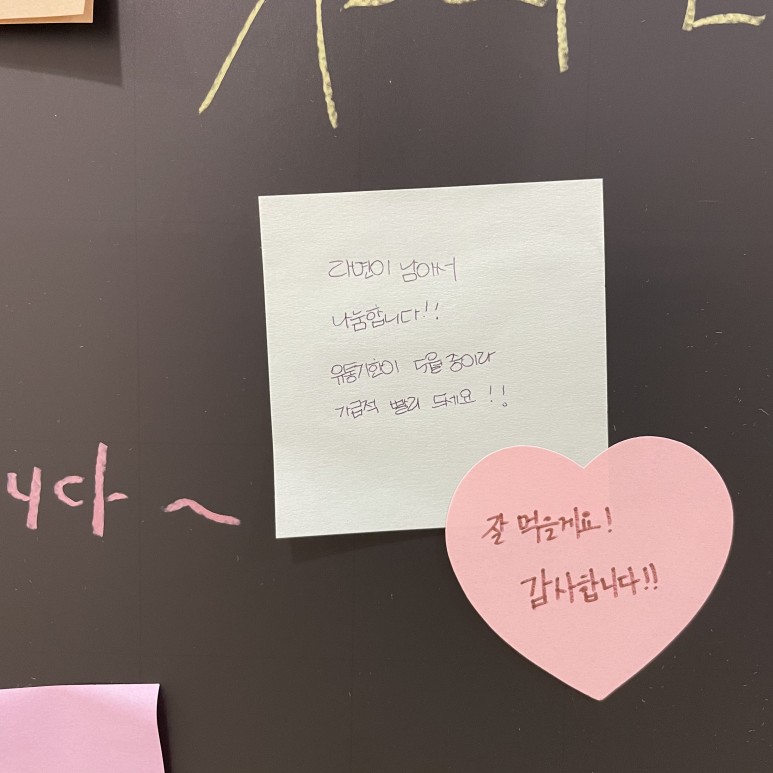 라면이 남아서
나눔합니다!!
유통기한이 다음 중이라
가급적 빨리 드세요 !!
니다~
잘 먹을게요!
감사합니다!!